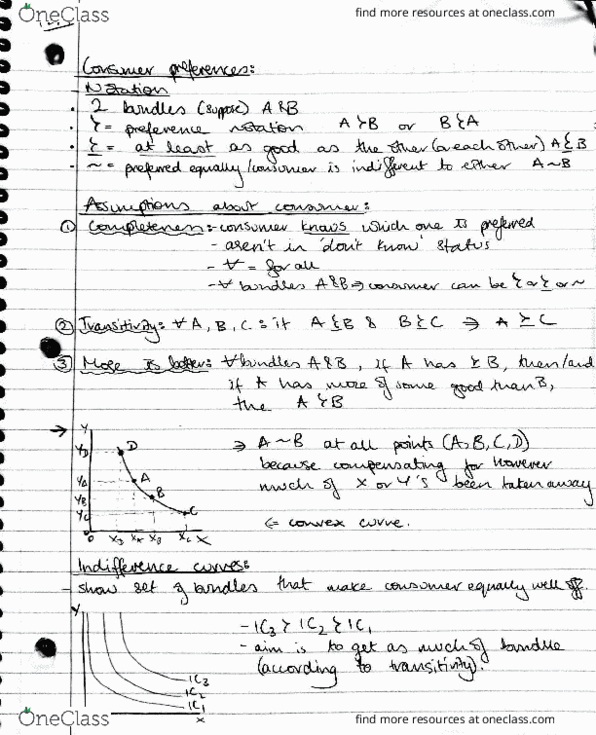 OneClass
find more resources at oneclass.com
Consumer preferences:
- Notation
· 2 bundles (suppose) A&B
· ≻ = preference notation A≻B or B≻A
· ≽ = at least as good as the other (or each other) A≽B
· ~ = preferred equally/consumer is indifferent to either A~B
Assumptions about consumer:
① Completeness: consumer knows which one is preferred
- aren't in 'don't know' status
- ∀ = for all
- ∀ bundles A&B ⇒ consumer can be ≻ or ≽ or ~
② Transitivity: ∀ A, B, C : if A≽B & B≽C ⇒ A≽C
③ More is better: ∀ bundles A&B, if A has ≥ B, then/and
if A has more of some good than B,
the A≻B
→ Y
YD D
⇒ A~B at all points (A,B,C,D)
YA A
because compensating for however
YB B
much of X or Y's been taken away
YC C
⇐ convex curve.
0 XD XA XB XC X
Indifference curves:
- show set of bundles that make consumer equally well off.
Y
- IC3 ≻ IC2 ≻ IC1
- aim is to get as much of bundle
(according to transitivity).
IC3
IC2
IC1
X
OneClass
find more resources at oneclass.com